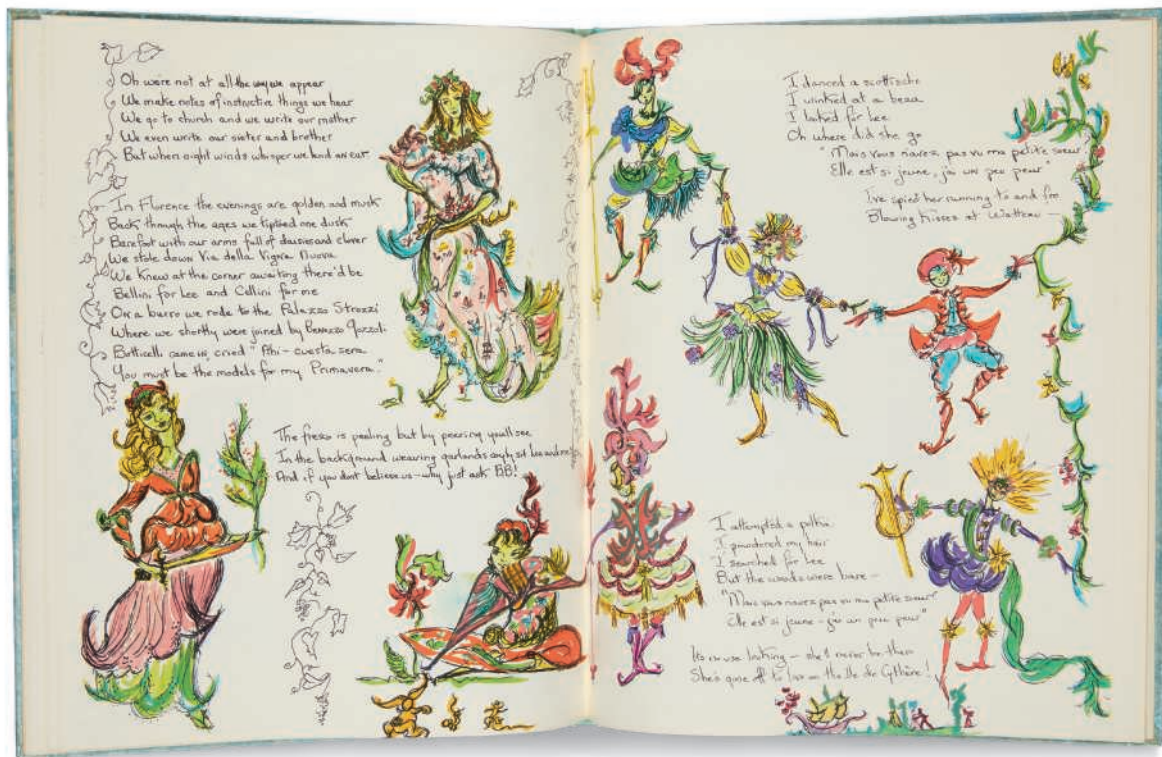 Oh we're not at all the way we appear
We make notes of instructive things we hear
We go to church and we write our mother
We even write our sister and brother
But when night winds whisper we lend an ear
In Florence the evenings are golden and musk
Back through the ages we tiptoed one dusk
Barefoot with our arms full of daisies and clover
We stole down Via della Vigna Nuova
We knew at the corner awaiting there'd be
Bellini for Lee and Cellini for me
On a burro we rode to the Palazzo Strozzi
Where we shortly were joined by Benozzo Gozzoli
Botticelli came in, cried "Ahi - cuesta sera
You must be the models for my Primavera."
The fresco is peeling but by peering you'll see
In the background weaving garlands sit Lee and me
And if you dont believe us - why just ask BB!
I danced a scottische
I winked at a beau
I looked for Lee
Oh where did she go
"Mais vous n'avez pas vu ma petite soeur?
Elle est si jeune, j'ai un peu peur"
I've spied her running to and fro
Blowing kisses at Watteau -
I attempted a polka
I powdered my hair
I searched for Lee
But the woods were bare -
"Mais vous n'avez pas vu ma petite soeur?
Elle est si jeune - j'ai un peu peur"
Its no use looking - she'll never be then
She's gone off to live on the Ile de Cythère!